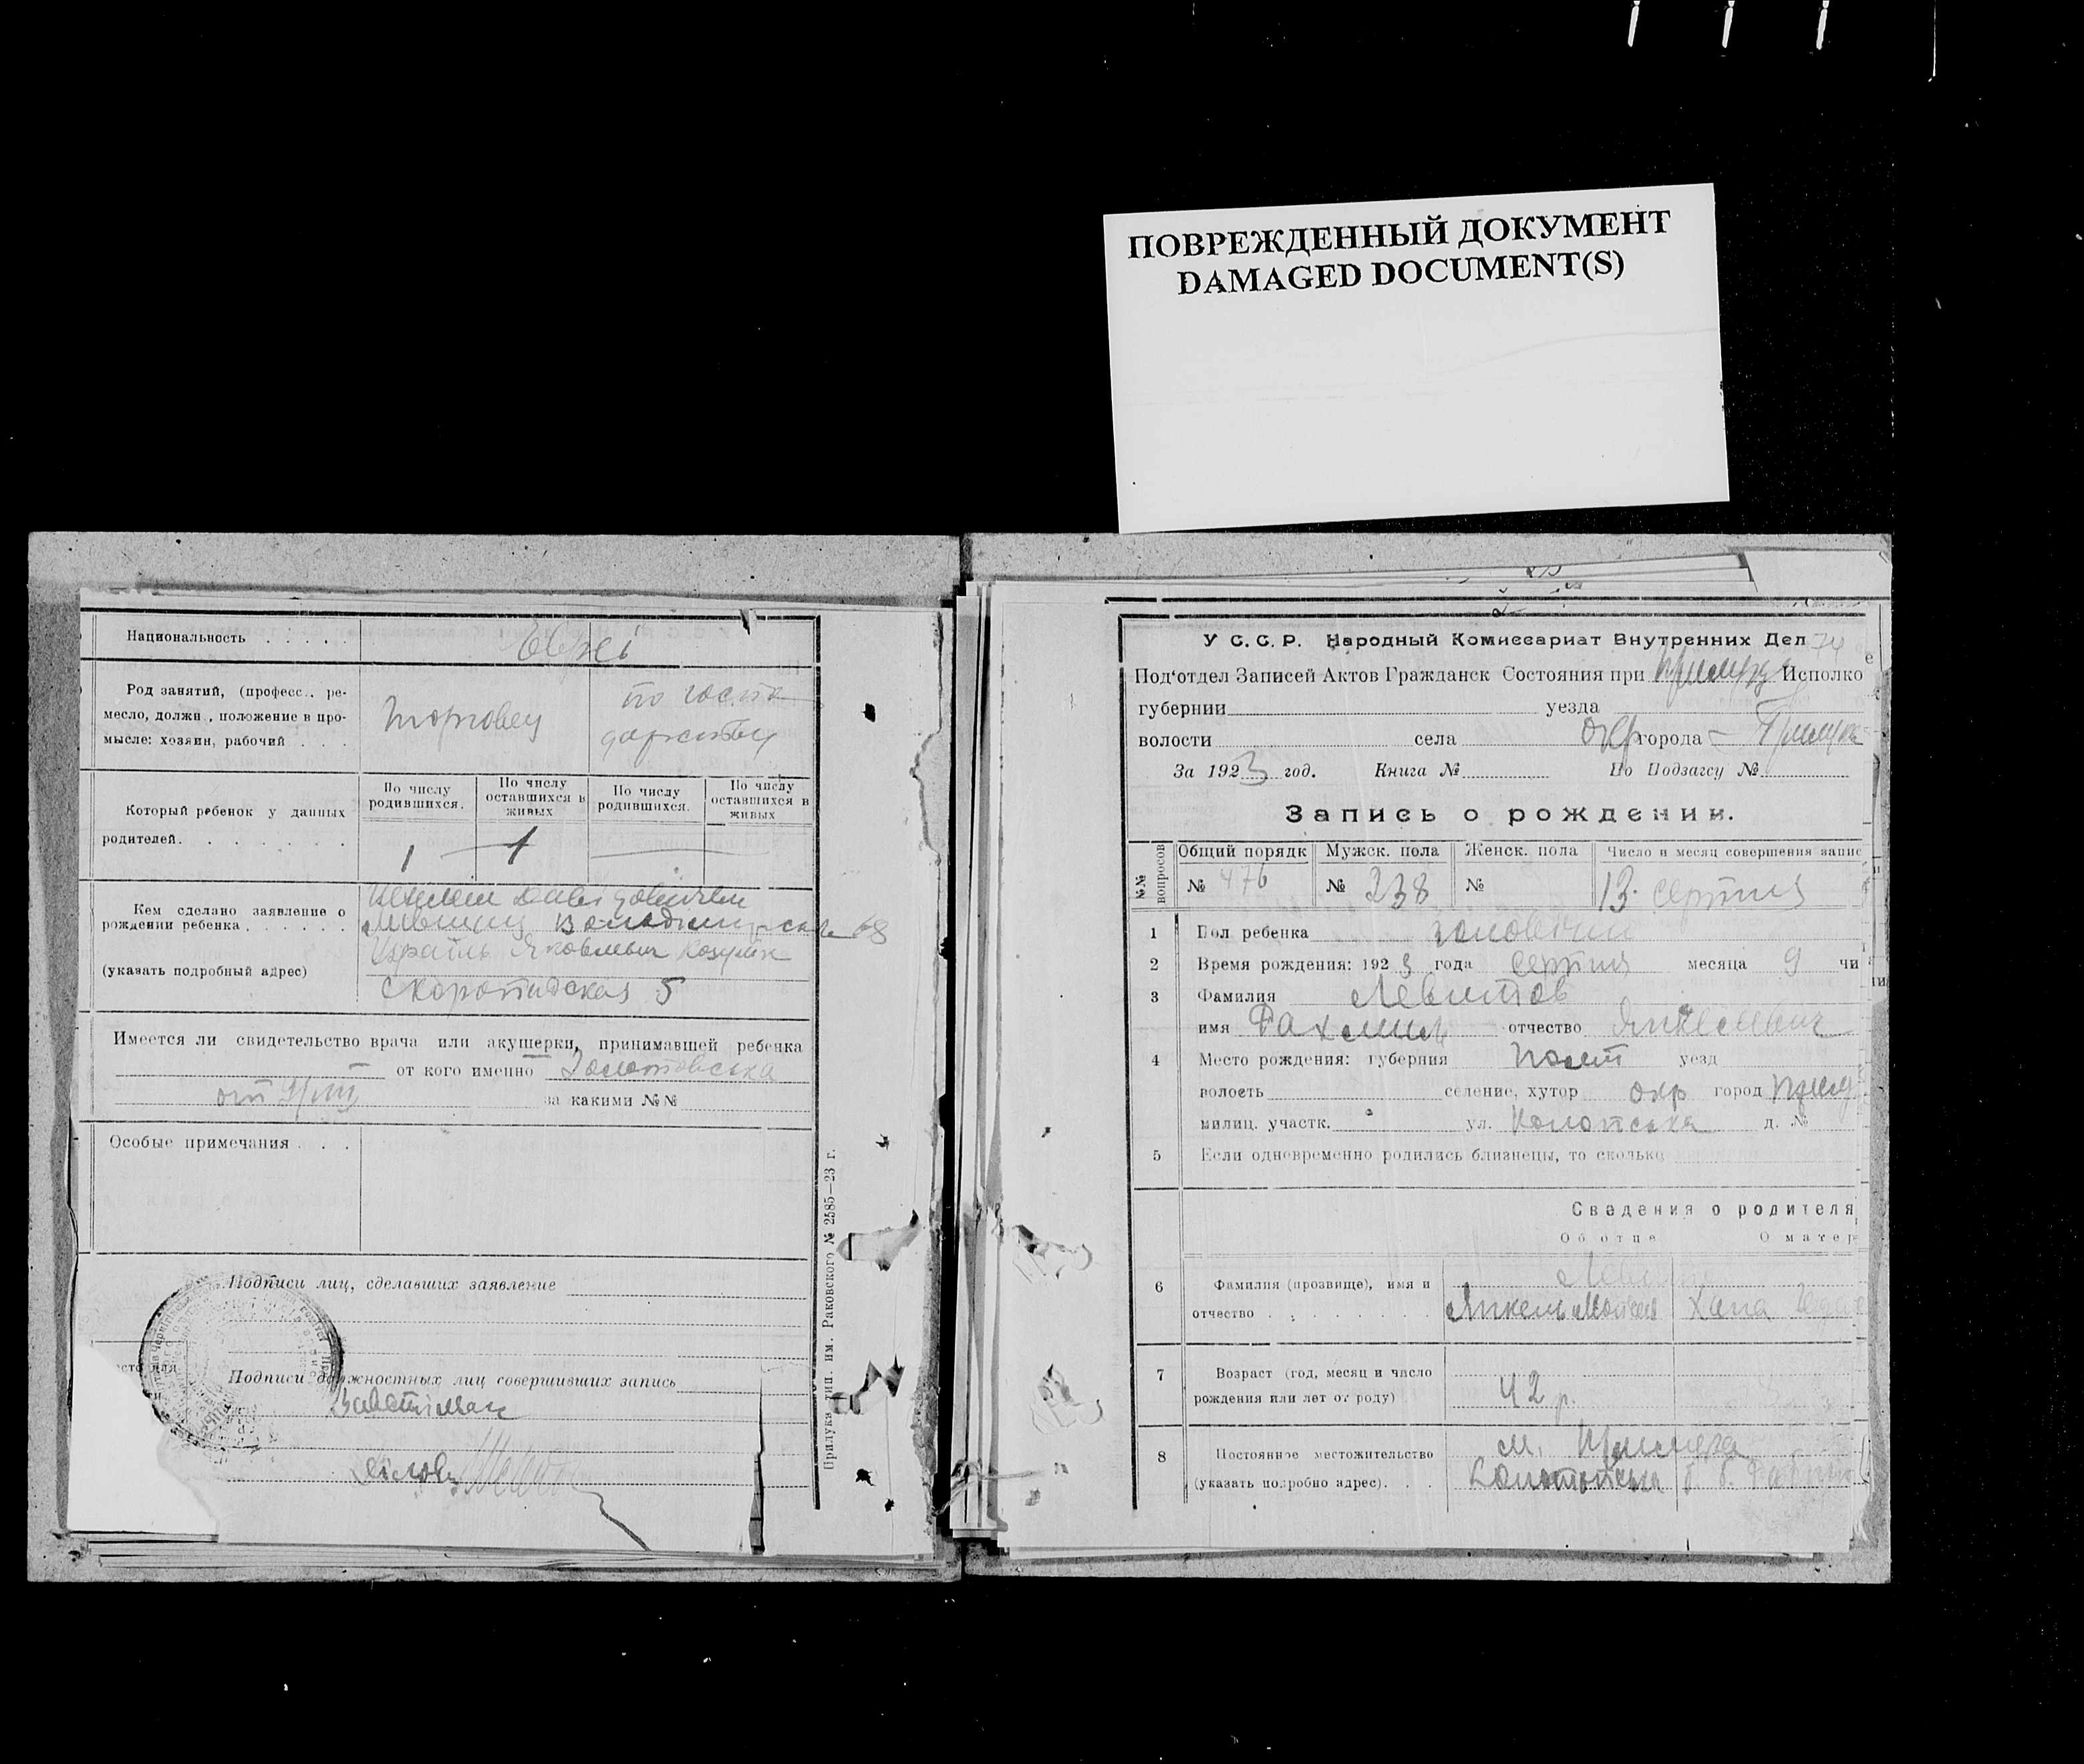 ПОВРЕЖДЕННЫЙ ДОКУМЕНТ
DAMAGED DOCUMENT(S)
Национальность
Евреї
Род занятий, (професс.. ре-
месло, должн., положение в про-
мысле: хозяин, рабочий
торговец
по госпо
дарству
Который ребенок у данных
родителей.
По числу родившихся.
По числу оставшихся в живых
По числу родившихся.
По числу оставшихся в живых
1 1
Кем сделано заявление о
рождении ребенка
(указать подробный адрес)
68
Израиль Яковлевич
5
Имеется ли свидетельство врача или акушерки, принимавшей ребенка
от кого именно
от за какими №№
Особые примечания
Подписи лиц, сделавших заявление
Подписи должностных лиц совершивших запись
Прилуки тип. им. Раковского № 2585—23 г.
У С. С. Р. Народный Комиссариат Внутренних Дел 74
Под'отдел Записей Актов Гражданск Состояния при Исполко
губернии уезда
волости села окр города Прилуки
За 1923 год. Книга № По Подзагсу №
Запись о рождении.
№№ вопросов
Общий порядк Мужск. пола Женск. пола Число и месяц совершения запис
№ 476 № 238 № 13 серпня
1 Пол ребенка чоловічий
2 Время рождения: 1923 года серпня месяца 9 чи
3 Фамилия Левитов
имя отчество Янкелевич
4 Место рождения: губерния Полт уезд
волость селение, хутор окр город Прил
милиц. участк. ул. д. №
5 Если одновременно родились близнецы, то сколько
Сведения о родителя
О б отце О матер
6 Фамилия (прозвище), имя и
отчество
Янкель Хана
7 Возраст (год, месяц и число
рождения или лет от роду)
42 р.
8 Постоянное местожительство
(указать подробно адрес).
м. Прилуки
Конотопська